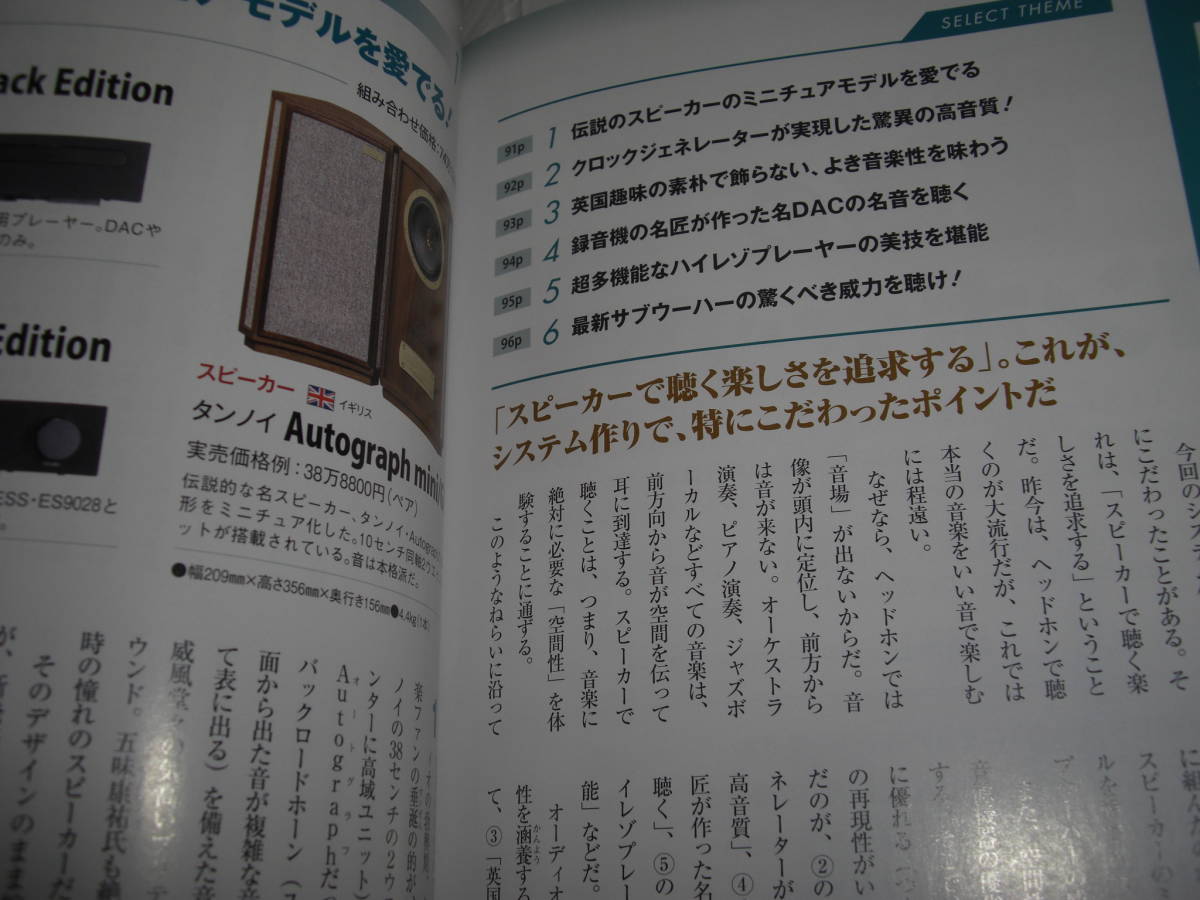 モデルを愛でる!
組み合わせ価格:
ack Edition
用プレーヤー。DACや
のみ。
Edition
ESS・ES9028と
スピーカー
イギリス
タンノイ Autograph mini
実売価格例:38万8800円(ペア)
伝説的な名スピーカー、タンノイ・Autograph
形をミニチュア化した。10センチ同軸2ウエ
ットが搭載されている。音は本格派だ。
●幅209mm×高さ356mm×奥行き156mm●4.4kg(1本)
楽ファンの垂涎の的が
ノイの38センチの2ウ
ンターに高域ユニット)
Autographだ
オートグラフ
バックロードホーン(ユ
面から出た音が複雑な音
て表に出る)を備えた音
威風堂々の
ウンド。五味康祐氏も
時の憧れのスピーカーだ
そのデザインのまま
SELECT THEME
91p 1 伝説のスピーカーのミニチュアモデルを愛でる
92p 2 クロックジェネレーターが実現した驚異の高音質!
93p 3 英国趣味の素朴で飾らない、よき音楽性を味わう
94p 4 録音機の名匠が作った名DACの名音を聴く
95p 5 超多機能なハイレゾプレーヤーの美技を堪能
96p 6 最新サブウーハーの驚くべき威力を聴け!
「スピーカーで聴く楽しさを追求する」。これが、
システム作りで、特にこだわったポイントだ
今回のシステム
にこだわったことがある。そ
れは、「スピーカーで聴く楽
しさを追求する」ということ
だ。昨今は、ヘッドホンで聴
くのが大流行だが、これでは
本当の音楽をいい音で楽しむ
には程遠い。
なぜなら、ヘッドホンでは
「音場」が出ないからだ。音
像が頭内に定位し、前方から
は音が来ない。オーケストラ
演奏、ピアノ演奏、ジャズボ
ーカルなどすべての音楽は、
前方向から音が空間を伝って
耳に到達する。スピーカーで
聴くことは、つまり、音楽に
絶対に必要な「空間性」を体
験することに通ずる。
このようなねらいに沿って
スピーカーの
に優れる
の再現性がい
だのが、②の
ネレーターが
高音質」、④
匠が作った名
聴く」、⑤の
イレゾプレー
能」などだ。
オーディオ
性を涵養する
かんよう
て、③「英国